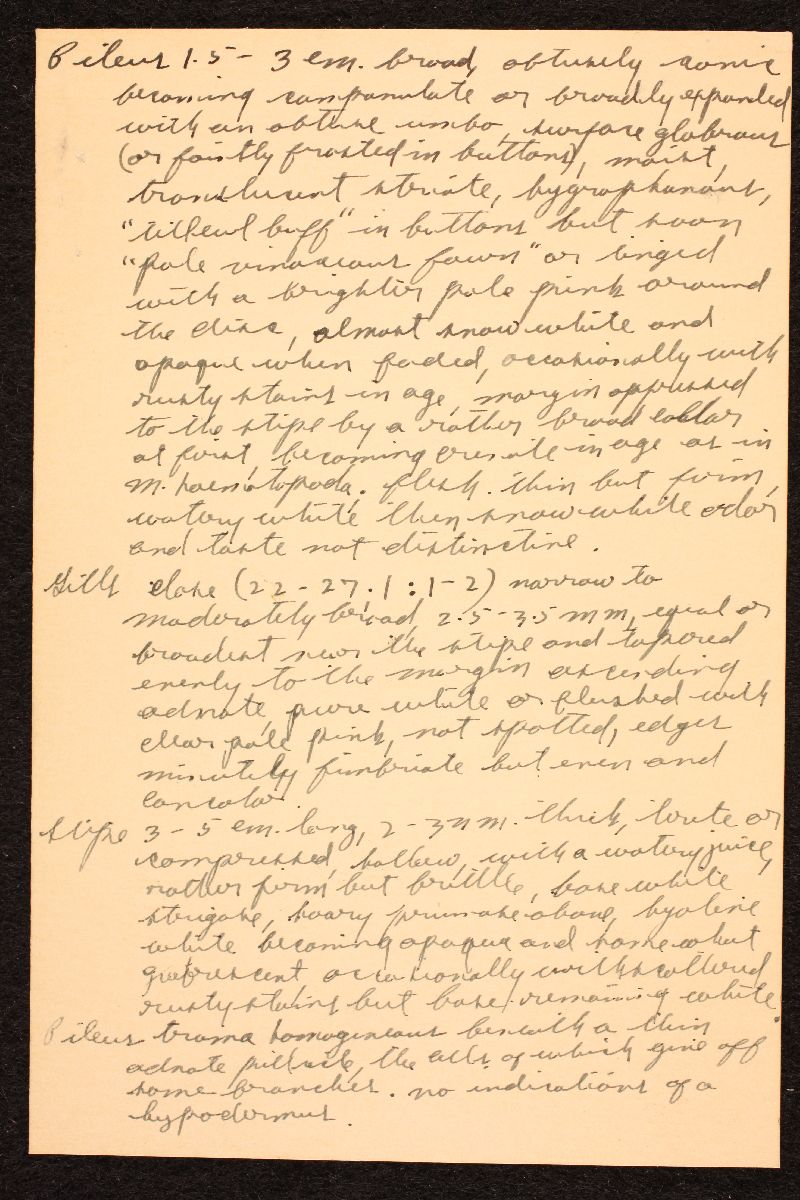 Pileus 1.5 - 3 cm. broad, obtusely conic
becoming campanulate or broadly expanded
with an obtuse umbo, surface glabrous
(or faintly frosted in buttons), moist,
translucent striate, hygrophanous,
"tilleul buff" in buttons but soon
"pale vinaceous fawn" or tinged
with a brighter pale pink around
the disc, almost snow white and
opaque when faded, occasionally with
rusty stains in age, margin appressed
to the stipe by a rather broad collar
at first, becoming crenate in age as in
M. haematopoda. flesh. thin but firm,
watery white then snow white odor
and taste not distinctive.
Gills close (22 - 27. 1 : 1-2) narrow to
moderately broad, 2.5 - 3.5 mm, equal or
broadest near the stipe and tapered
evenly to the margin ascending
adnate, pure white or flushed with
clear pale pink, not spotted, edges
minutely fimbriate but even and
concolor.
Stipe 3 - 5 cm. long, 2 - 3 mm. thick, terete or
compressed, hollow, with a watery juice,
rather firm but brittle, base white
strigose, hoary pruinose above, hyaline
white becoming opaque and somewhat
occasionally with scattered
rusty stains but base remaining white.
Pileus trama homogeneous beneath a thin
adnate pellicle, the cells of which give off
some branches. no indications of a
hypodermus.